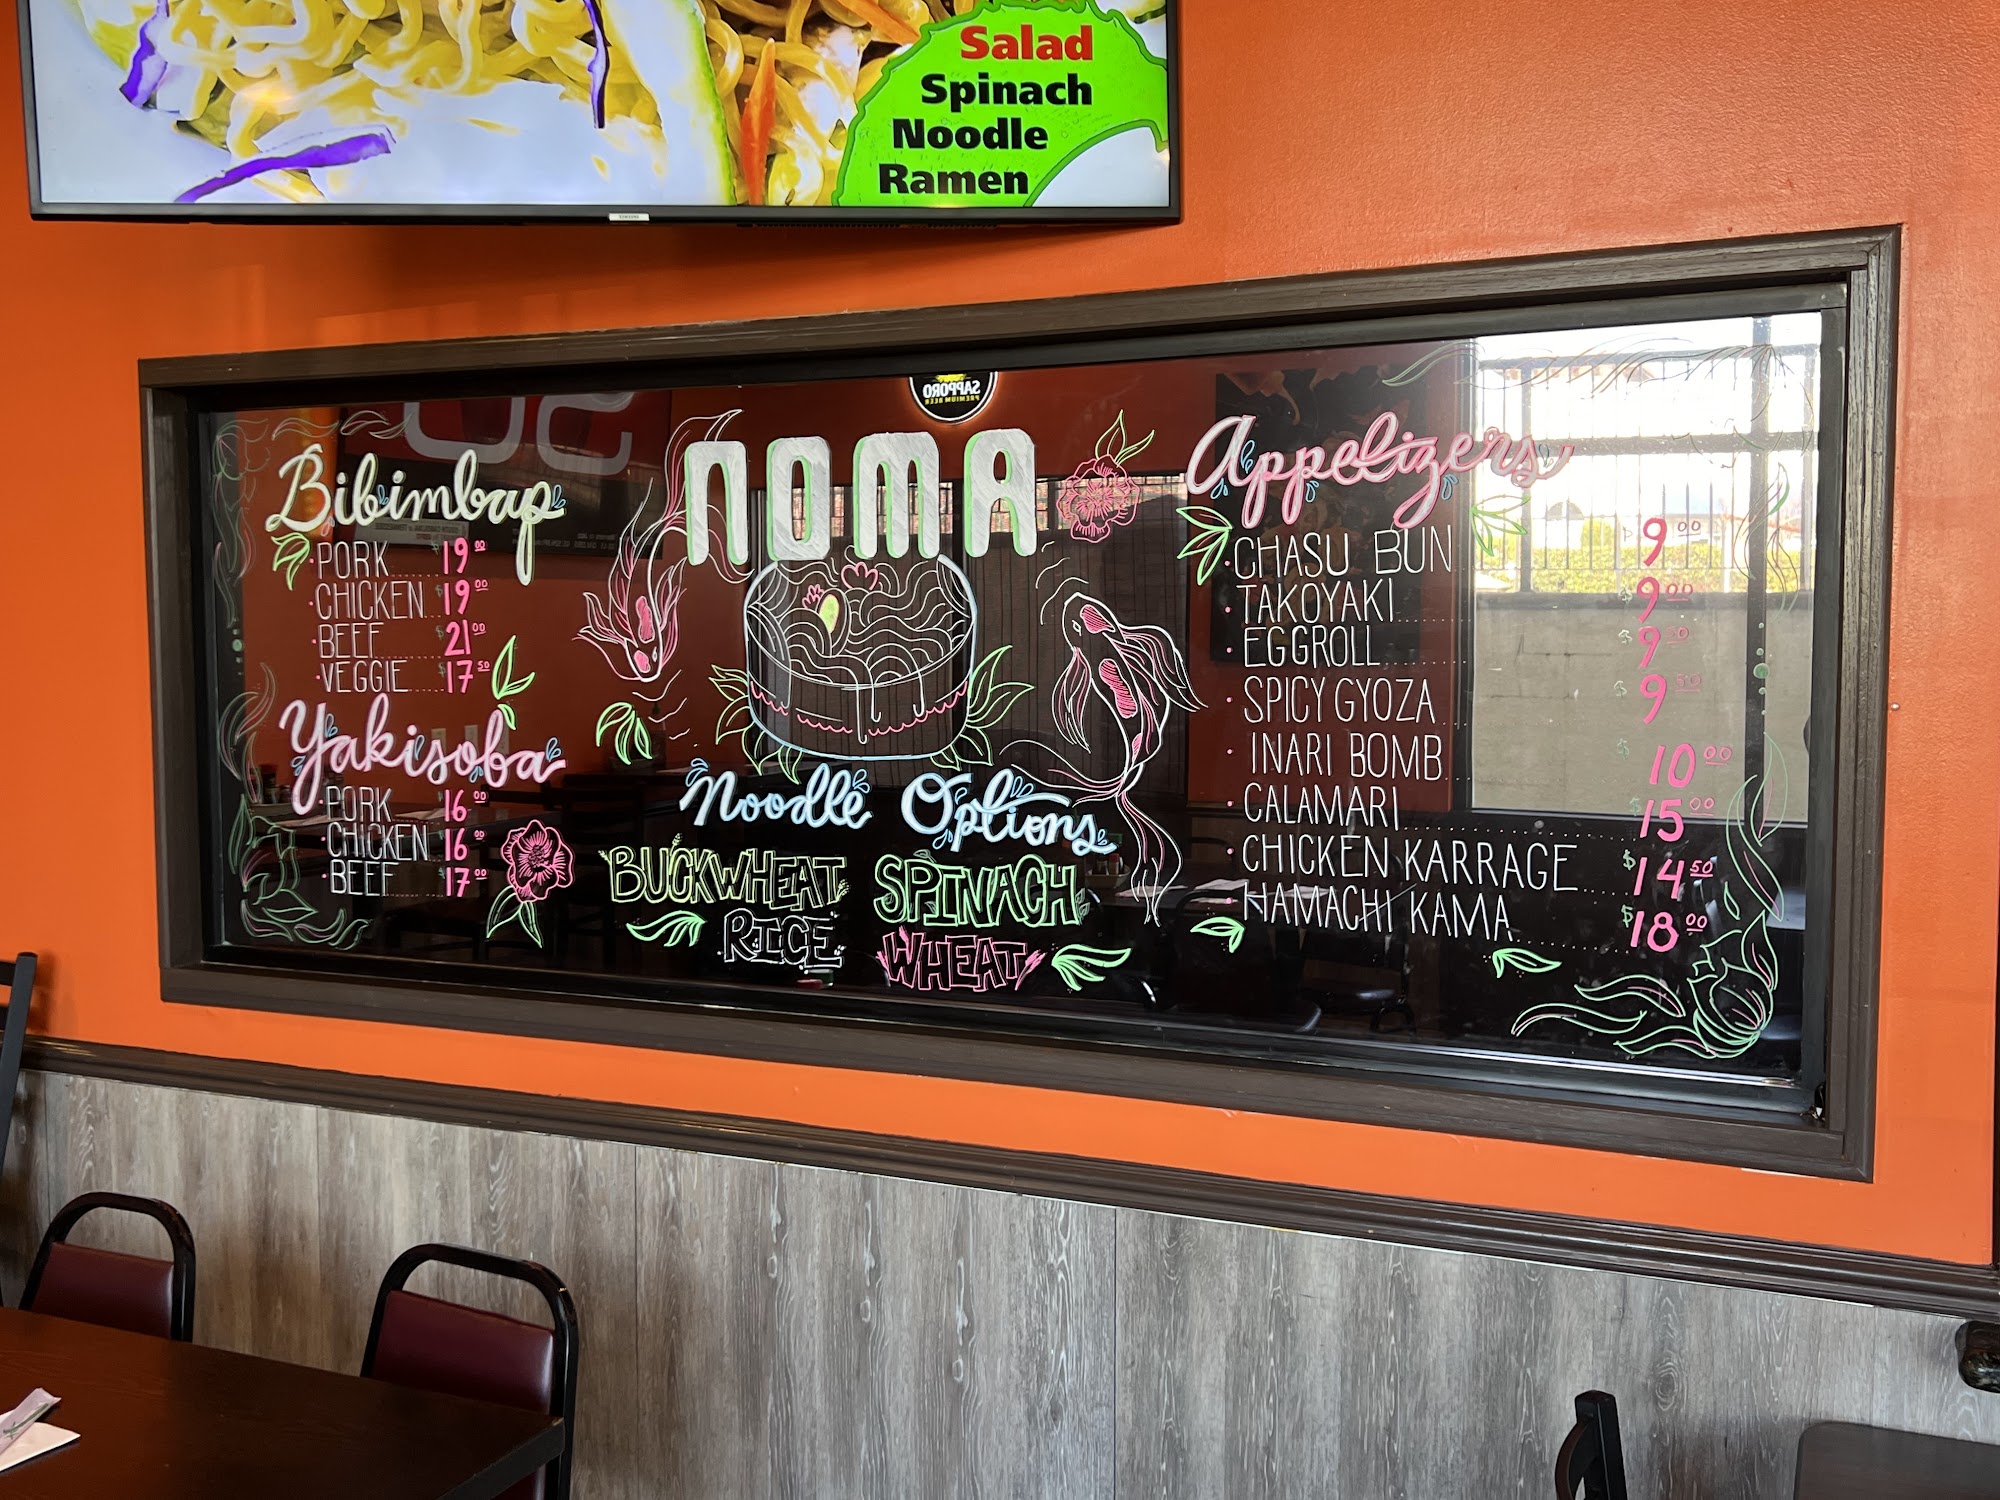 Salad
Spinach
Noodle
Ramen
NOMA
Bibimbap
· PORK $19.00
· CHICKEN $19.00
· BEEF $21.00
· VEGGIE $17.50
Yakisoba
· PORK $16.00
· CHICKEN $16.00
· BEEF $17.00
Noodle Options
BUCKWHEAT SPINACH
RICE WHEAT
Appetizers
· CHASU BUN $9.00
· TAKOYAKI $9.00
· EGGROLL $9.00
· SPICY GYOZA $9.50
· INARI BOMB $10.00
· CALAMARI $15.00
· CHICKEN KARRAGE $14.50
· HAMACHI KAMA $18.00
SAPPORO
PREMIUM BEER